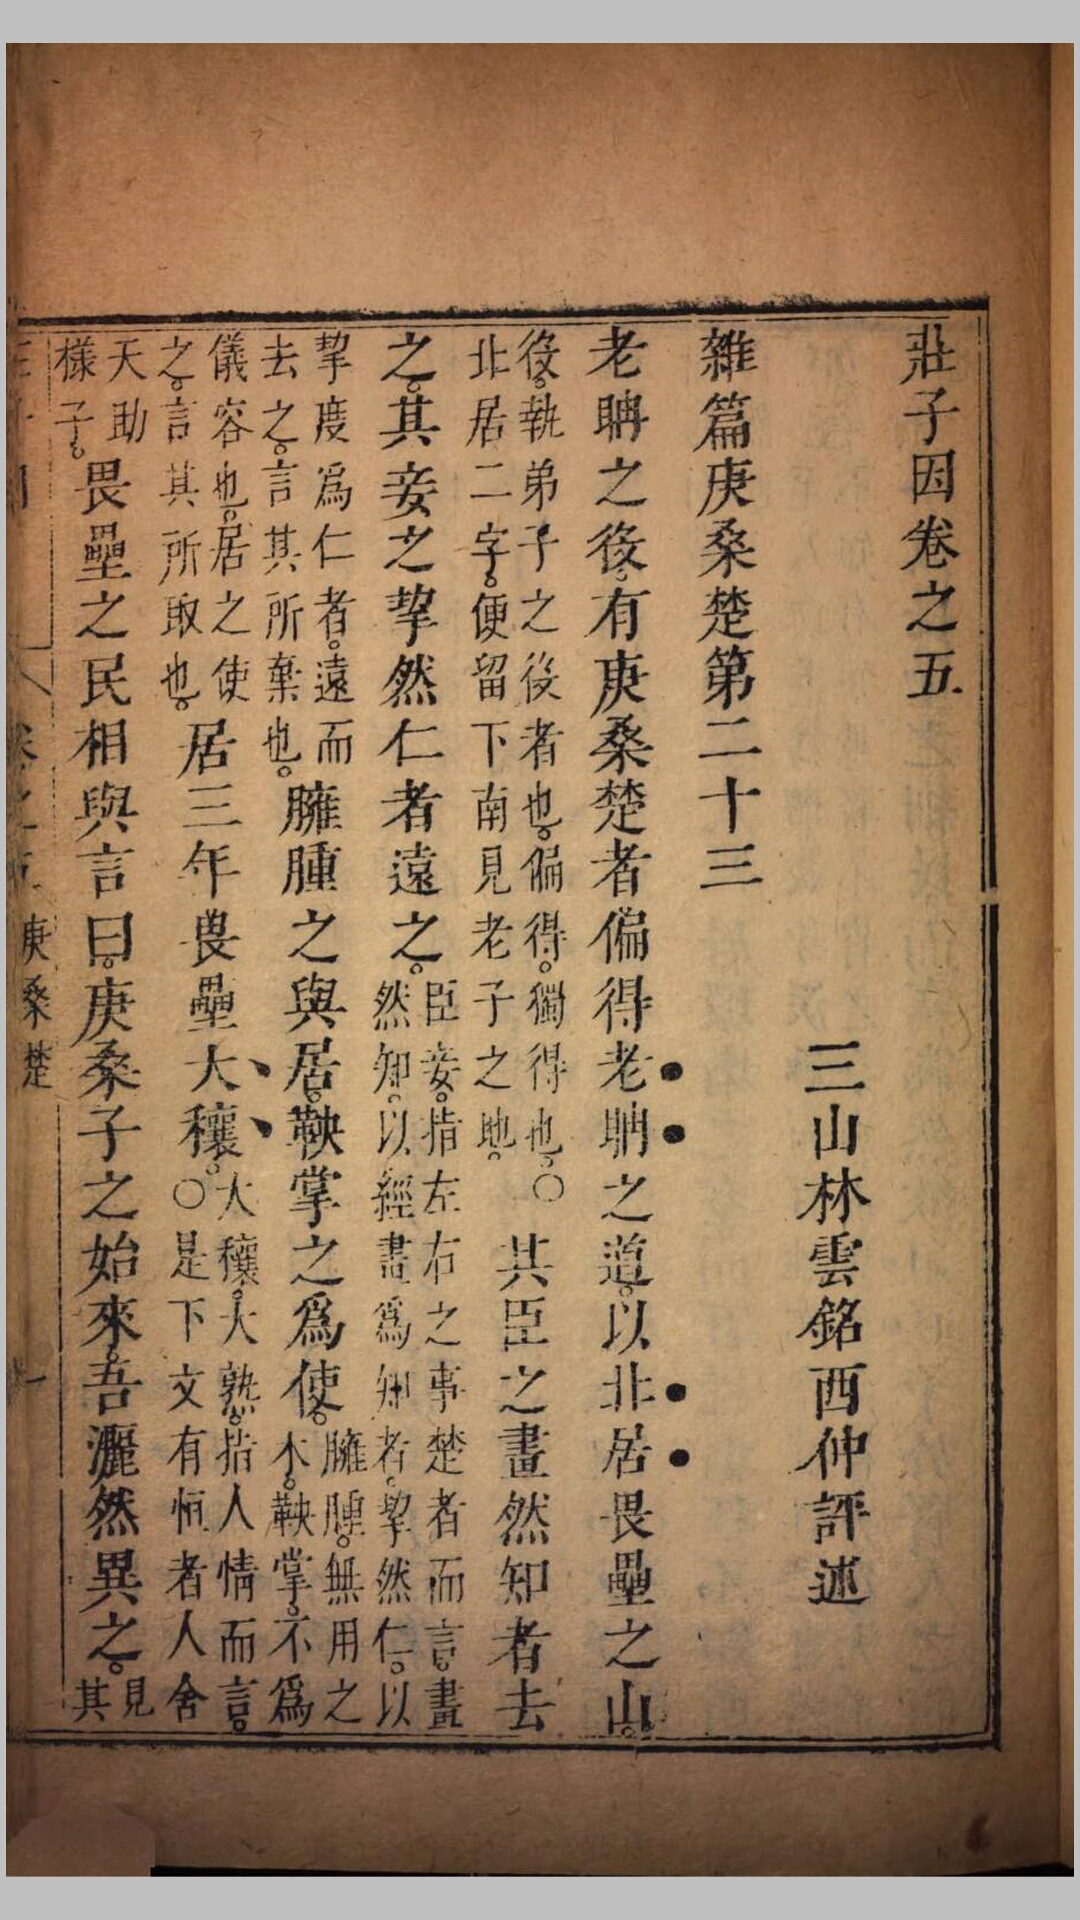 莊子因卷之五
三山林雲銘西仲評述
雜篇庚桑楚第二十三
老聃之役。有庚桑楚者偏得老聃之道。以北居畏壘之山。
役。執弟子之役者也。偏得。獨得也。○
北居二字。便留下南見老子之地。
其臣之畫然知者去
之。其妾之挈然仁者遠之。
臣妾。指左右之事楚者而言。畫
然知。以經畫爲知者。挈然仁。以
挈度爲仁者。遠而
去之。言其所棄也。
臃腫之與居。鞅掌之爲使。
臃腫。無用之
木。鞅掌。不爲
儀容也。居之使
之。言其所取也。
居三年畏壘大穰。
大穰。大熟。指人情而言。
○是下文有恒者人舍
天助
樣子。
畏壘之民相與言曰。庚桑子之始來。吾灑然異之。
見
其
庚桑楚
一